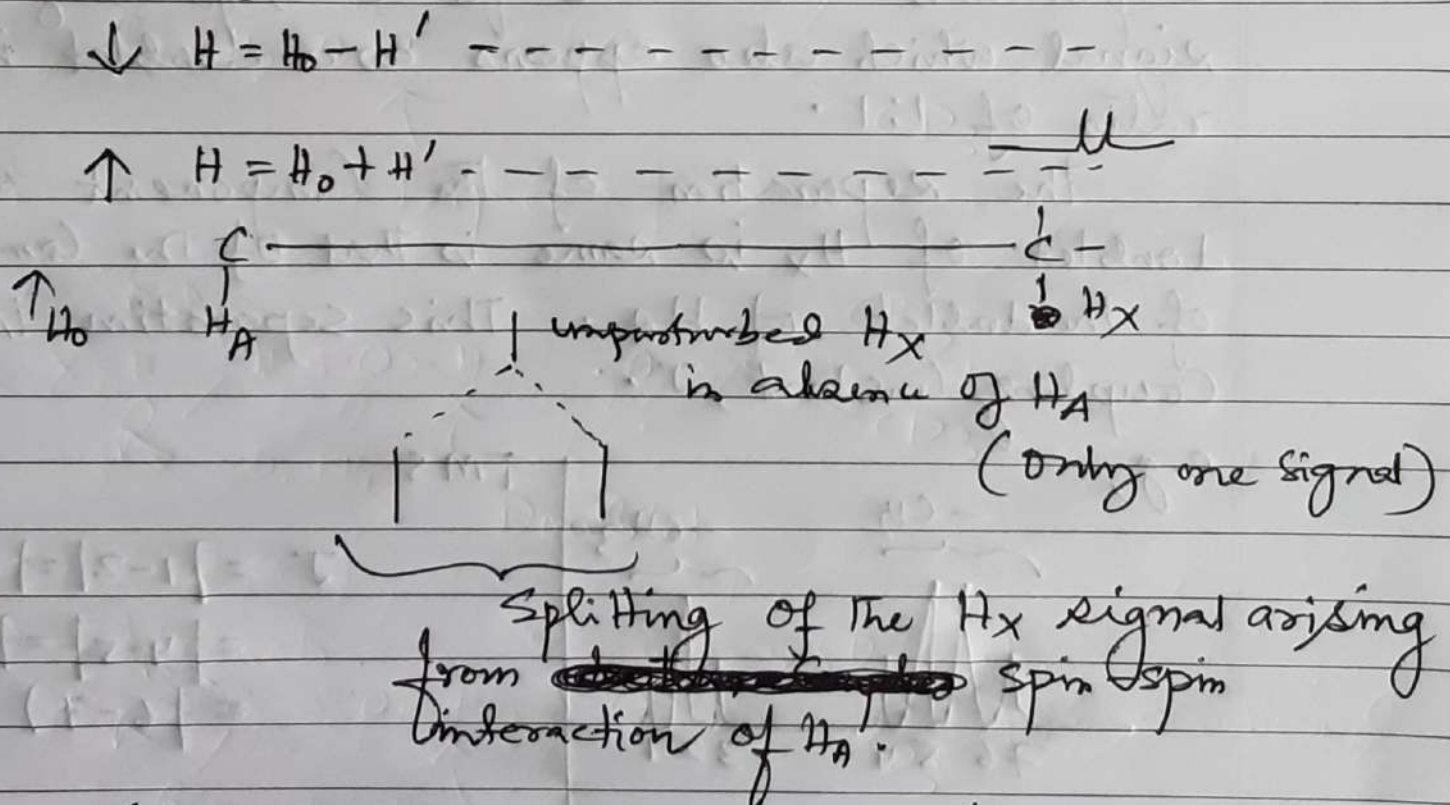 ↓ H = H₀ − H′ - - - - - - - - - - -
↑ H = H₀ + H′ - - - - - - - - - - -
C ——— C –
↑ H₀ H_A H_X
unparturbed H_X
in absence of H_A
(only one signal)
Splitting of the H_X signal arising
from spin spin
interaction of H_A.